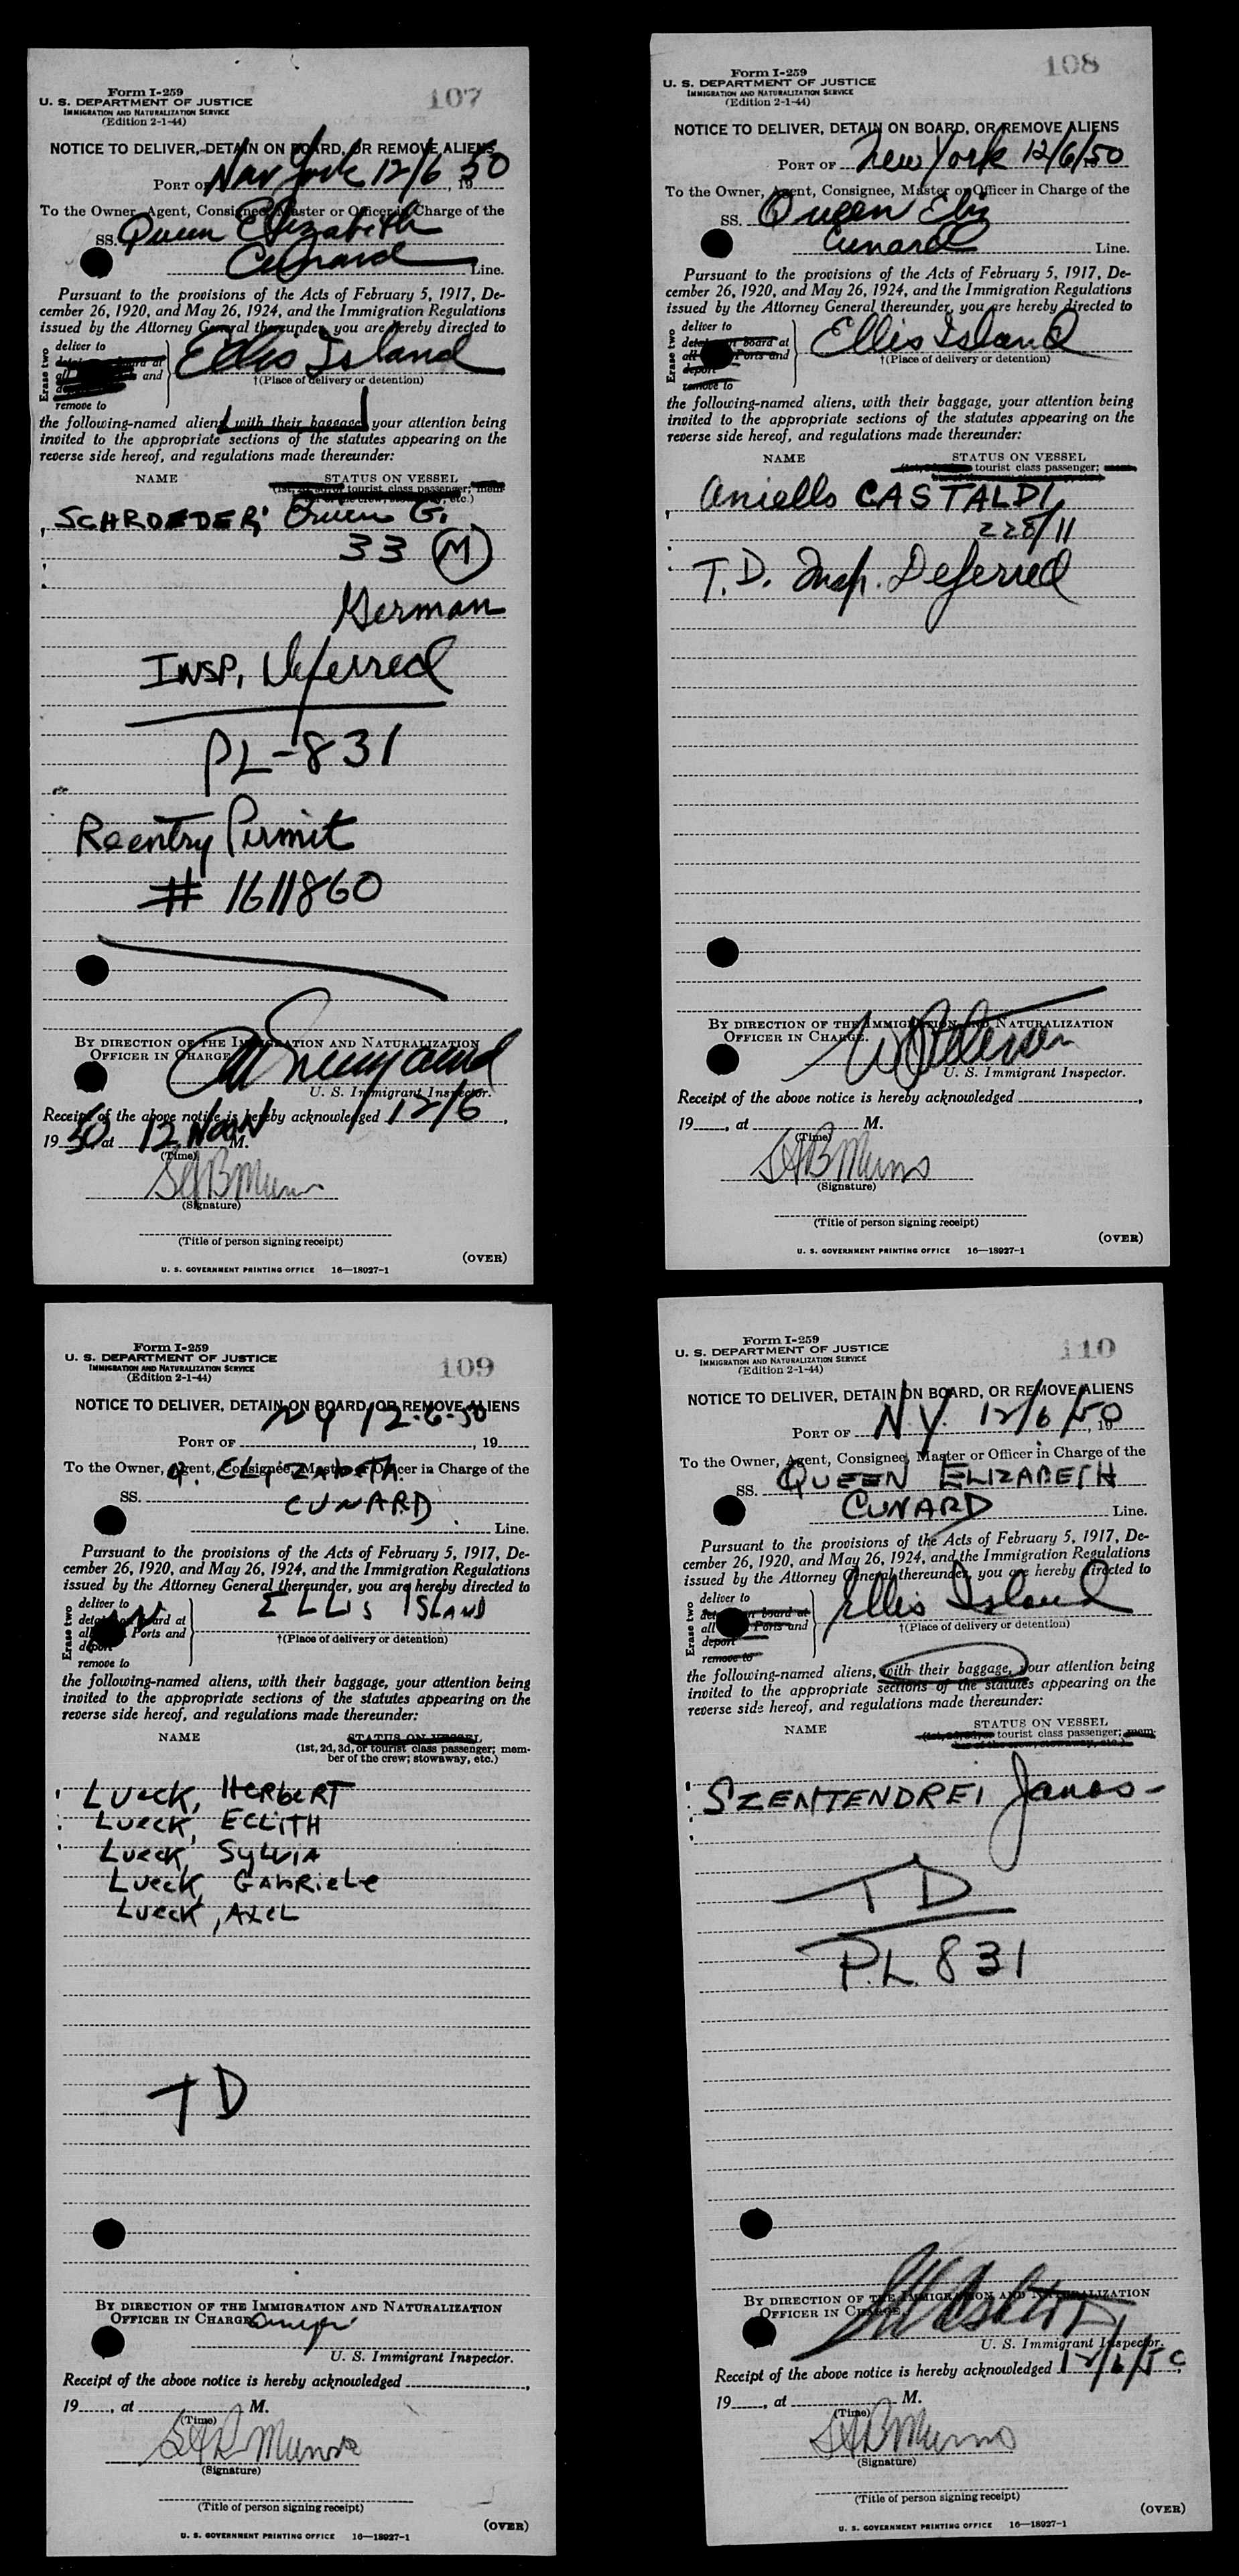 107
Form I-259
U. S. DEPARTMENT OF JUSTICE
IMMIGRATION AND NATURALIZATION SERVICE
(Edition 2-1-44)
NOTICE TO DELIVER, DETAIN ON BOARD, OR REMOVE ALIENS
PORT OF New York 12/6, 1950
To the Owner, Agent, Consignee, Master or Officer in Charge of the
SS. Queen Elizabeth
Cunard Line.
Pursuant to the provisions of the Acts of February 5, 1917, De-
cember 26, 1920, and May 26, 1924, and the Immigration Regulations
issued by the Attorney General thereunder, you are hereby directed to
Erase two
deliver to
board at
all and
remove to
Ellis Island
†(Place of delivery or detention)
the following-named aliens, with their baggage, your attention being
invited to the appropriate sections of the statutes appearing on the
reverse side hereof, and regulations made thereunder:
NAME STATUS ON VESSEL
(1st, 2d, 3d, or tourist class passenger; mem-
ber of the crew, stowaway, etc.)
SCHROEDER, G.
33 M
German
INSP. Deferred
PL-831
Reentry Permit
# 1611860
BY DIRECTION OF THE IMMIGRATION AND NATURALIZATION
OFFICER IN CHARGE.
U. S. Immigrant Inspector.
Receipt of the above notice is hereby acknowledged 12/6,
1950 at 12 Noon M.
(Time)
SAB Munro
(Signature)
(Title of person signing receipt)
(OVER)
U. S. GOVERNMENT PRINTING OFFICE 16—18927-1
108
Form I-259
U. S. DEPARTMENT OF JUSTICE
IMMIGRATION AND NATURALIZATION SERVICE
(Edition 2-1-44)
NOTICE TO DELIVER, DETAIN ON BOARD, OR REMOVE ALIENS
PORT OF New York 12/6/50
To the Owner, Agent, Consignee, Master or Officer in Charge of the
SS. Queen Eliz
Cunard Line.
Pursuant to the provisions of the Acts of February 5, 1917, De-
cember 26, 1920, and May 26, 1924, and the Immigration Regulations
issued by the Attorney General thereunder, you are hereby directed to
Erase two
deliver to
detain on board at
all Ports and
deport
remove to
Ellis Island
†(Place of delivery or detention)
the following-named aliens, with their baggage, your attention being
invited to the appropriate sections of the statutes appearing on the
reverse side hereof, and regulations made thereunder:
NAME STATUS ON VESSEL
tourist class passenger; mem-
Aniello CASTALDI,
228/11
T.D. Insp. Deferred
BY DIRECTION OF THE IMMIGRATION AND NATURALIZATION
OFFICER IN CHARGE.
U. S. Immigrant Inspector.
Receipt of the above notice is hereby acknowledged ,
19 , at M.
(Time)
SAB Munro
(Signature)
(Title of person signing receipt)
(OVER)
U. S. GOVERNMENT PRINTING OFFICE 16—18927-1
109
Form I-259
U. S. DEPARTMENT OF JUSTICE
IMMIGRATION AND NATURALIZATION SERVICE
(Edition 2-1-44)
NOTICE TO DELIVER, DETAIN ON BOARD, OR REMOVE ALIENS
NY 12-6-50
PORT OF , 19
To the Owner, Agent, Consignee, Master or Officer in Charge of the
Q. ELIZABETH
SS. CUNARD
Line.
Pursuant to the provisions of the Acts of February 5, 1917, De-
cember 26, 1920, and May 26, 1924, and the Immigration Regulations
issued by the Attorney General thereunder, you are hereby directed to
Erase two
deliver to
detain on board at
all Ports and
deport
remove to
ELLIS ISLAND
†(Place of delivery or detention)
the following-named aliens, with their baggage, your attention being
invited to the appropriate sections of the statutes appearing on the
reverse side hereof, and regulations made thereunder:
NAME STATUS ON VESSEL
(1st, 2d, 3d, or tourist class passenger; mem-
ber of the crew; stowaway, etc.)
LUECK, HERBERT
LUECK, EDITH
LUECK, SYLVIA
LUECK, GABRIELE
LUECK, AXEL
TD
BY DIRECTION OF THE IMMIGRATION AND NATURALIZATION
OFFICER IN CHARGE.
U. S. Immigrant Inspector.
Receipt of the above notice is hereby acknowledged ,
19 , at M.
(Time)
SAB Munro
(Signature)
(Title of person signing receipt)
(OVER)
U. S. GOVERNMENT PRINTING OFFICE 16—18927-1
110
Form I-259
U. S. DEPARTMENT OF JUSTICE
IMMIGRATION AND NATURALIZATION SERVICE
(Edition 2-1-44)
NOTICE TO DELIVER, DETAIN ON BOARD, OR REMOVE ALIENS
PORT OF N.Y. 12/6/50, 19
To the Owner, Agent, Consignee, Master or Officer in Charge of the
SS. QUEEN ELIZABETH
CUNARD Line.
Pursuant to the provisions of the Acts of February 5, 1917, De-
cember 26, 1920, and May 26, 1924, and the Immigration Regulations
issued by the Attorney General thereunder, you are hereby directed to
Erase two
deliver to
detain on board at
all Ports and
deport
remove to
Ellis Island
†(Place of delivery or detention)
the following-named aliens, with their baggage, your attention being
invited to the appropriate sections of the statutes appearing on the
reverse side hereof, and regulations made thereunder:
NAME STATUS ON VESSEL
tourist class passenger; mem-
SZENTENDREI Janos-
TD
P.L. 831
BY DIRECTION OF THE IMMIGRATION AND NATURALIZATION
OFFICER IN CHARGE.
U. S. Immigrant Inspector.
Receipt of the above notice is hereby acknowledged 12/6/50,
19 , at M.
(Time)
SAB Munro
(Signature)
(Title of person signing receipt)
(OVER)
U. S. GOVERNMENT PRINTING OFFICE 16—18927-1